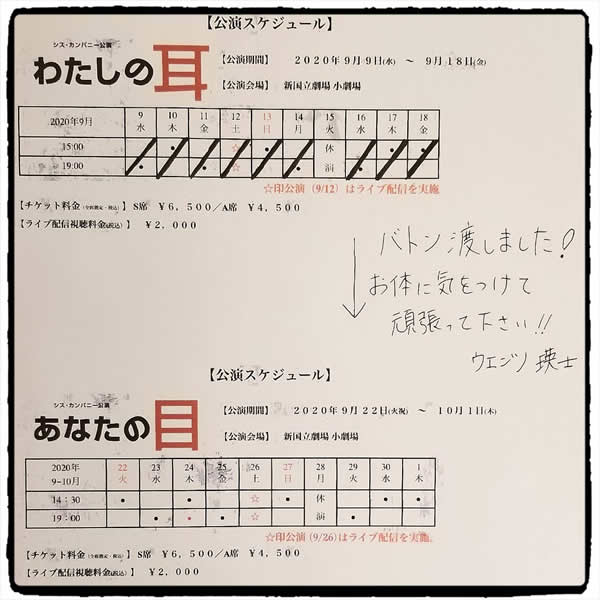 【公演スケジュール】
シス・カンパニー公演
わたしの耳
【公演期間】 2020年9月9日(水) ～ 9月18日(金)
【公演会場】 新国立劇場 小劇場
2020年9月 9 10 11 12 13 14 15 16 17 18
水 木 金 土 日 月 火 水 木 金
15:00 ☆ 休
19:00 ☆ 演
☆印公演（9/12）はライブ配信を実施
【チケット料金（全席指定・税込）】 S席 ¥6,500／A席 ¥4,500
【ライブ配信視聴料金(税込)】 ¥2,000
バトン渡しました!
お体に気をつけて
頑張って下さい!!
ウエンツ瑛士
【公演スケジュール】
シス・カンパニー公演
あなたの目
【公演期間】 2020年9月22日(火祝) ～ 10月1日(木)
【公演会場】 新国立劇場 小劇場
2020年 22 23 24 25 26 27 28 29 30 1
9-10月 火 水 木 金 土 日 月 火 水 木
14：30 ● ☆ ● 休 ● ●
19：00 ● ● ● ☆ 演 ●
☆印公演（9/26）はライブ配信を実施。
【チケット料金（全席指定・税込）】 S席 ¥6,500／A席 ¥4,500
【ライブ配信視聴料金(税込)】 ¥2,000